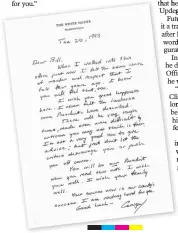 for you."
THE WHITE HOUSE
WASHINGTON
Jan 20, 1993
Dear Bill,
When I walked into this
office just now I felt the same sense
of wonder and respect that I
felt four years ago. I know
you will feel that, too.
I wish you great happiness
here. I never felt the loneliness
some Presidents have described.
There will be very tough
times, made even more difficult by
criticism you may not think is fair.
I'm not a very good one to give
advice; but just don't let the
critics discourage you or push
you off course.
You will be our President
when you read this note. I wish
you well. I wish your family
well.
Your success now is our country's
success. I am rooting hard for you.
Good Luck - George
that he
Updeg
Futu
it a tra
after
word
gurat
In
he d
Offic
he w
Cli
lon